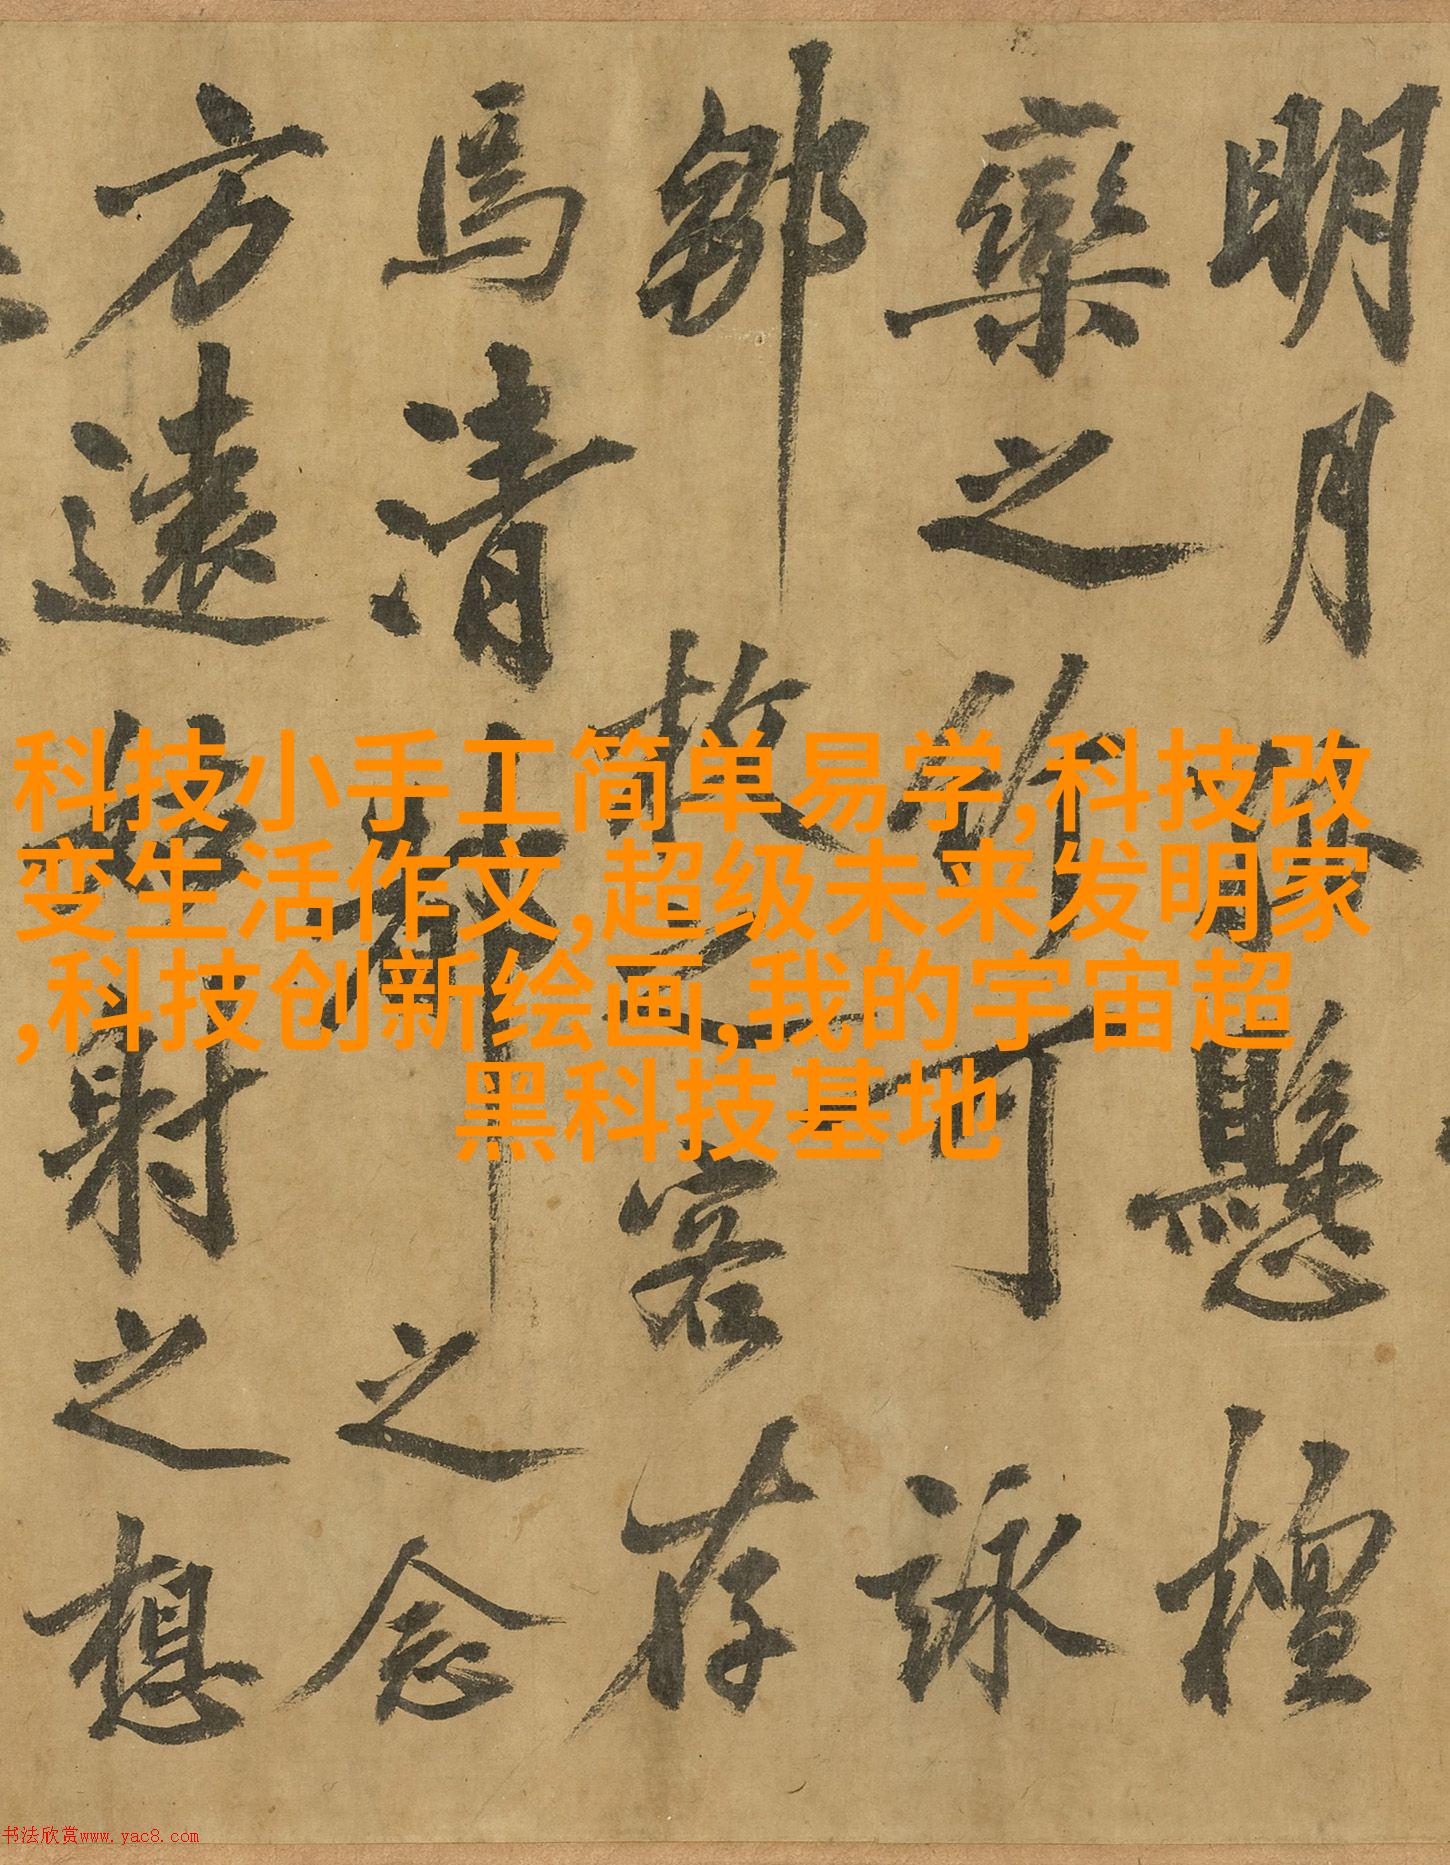 明月不懸檀
欒之竹可詠
鄒枚之客存
焉清之念
方遠姑射之想
科技小手工简单易学,科技改
变生活作文,超级未来发明家
,科技创新绘画,我的宇宙超
黑科技基地
书法欣赏www.yac8.com